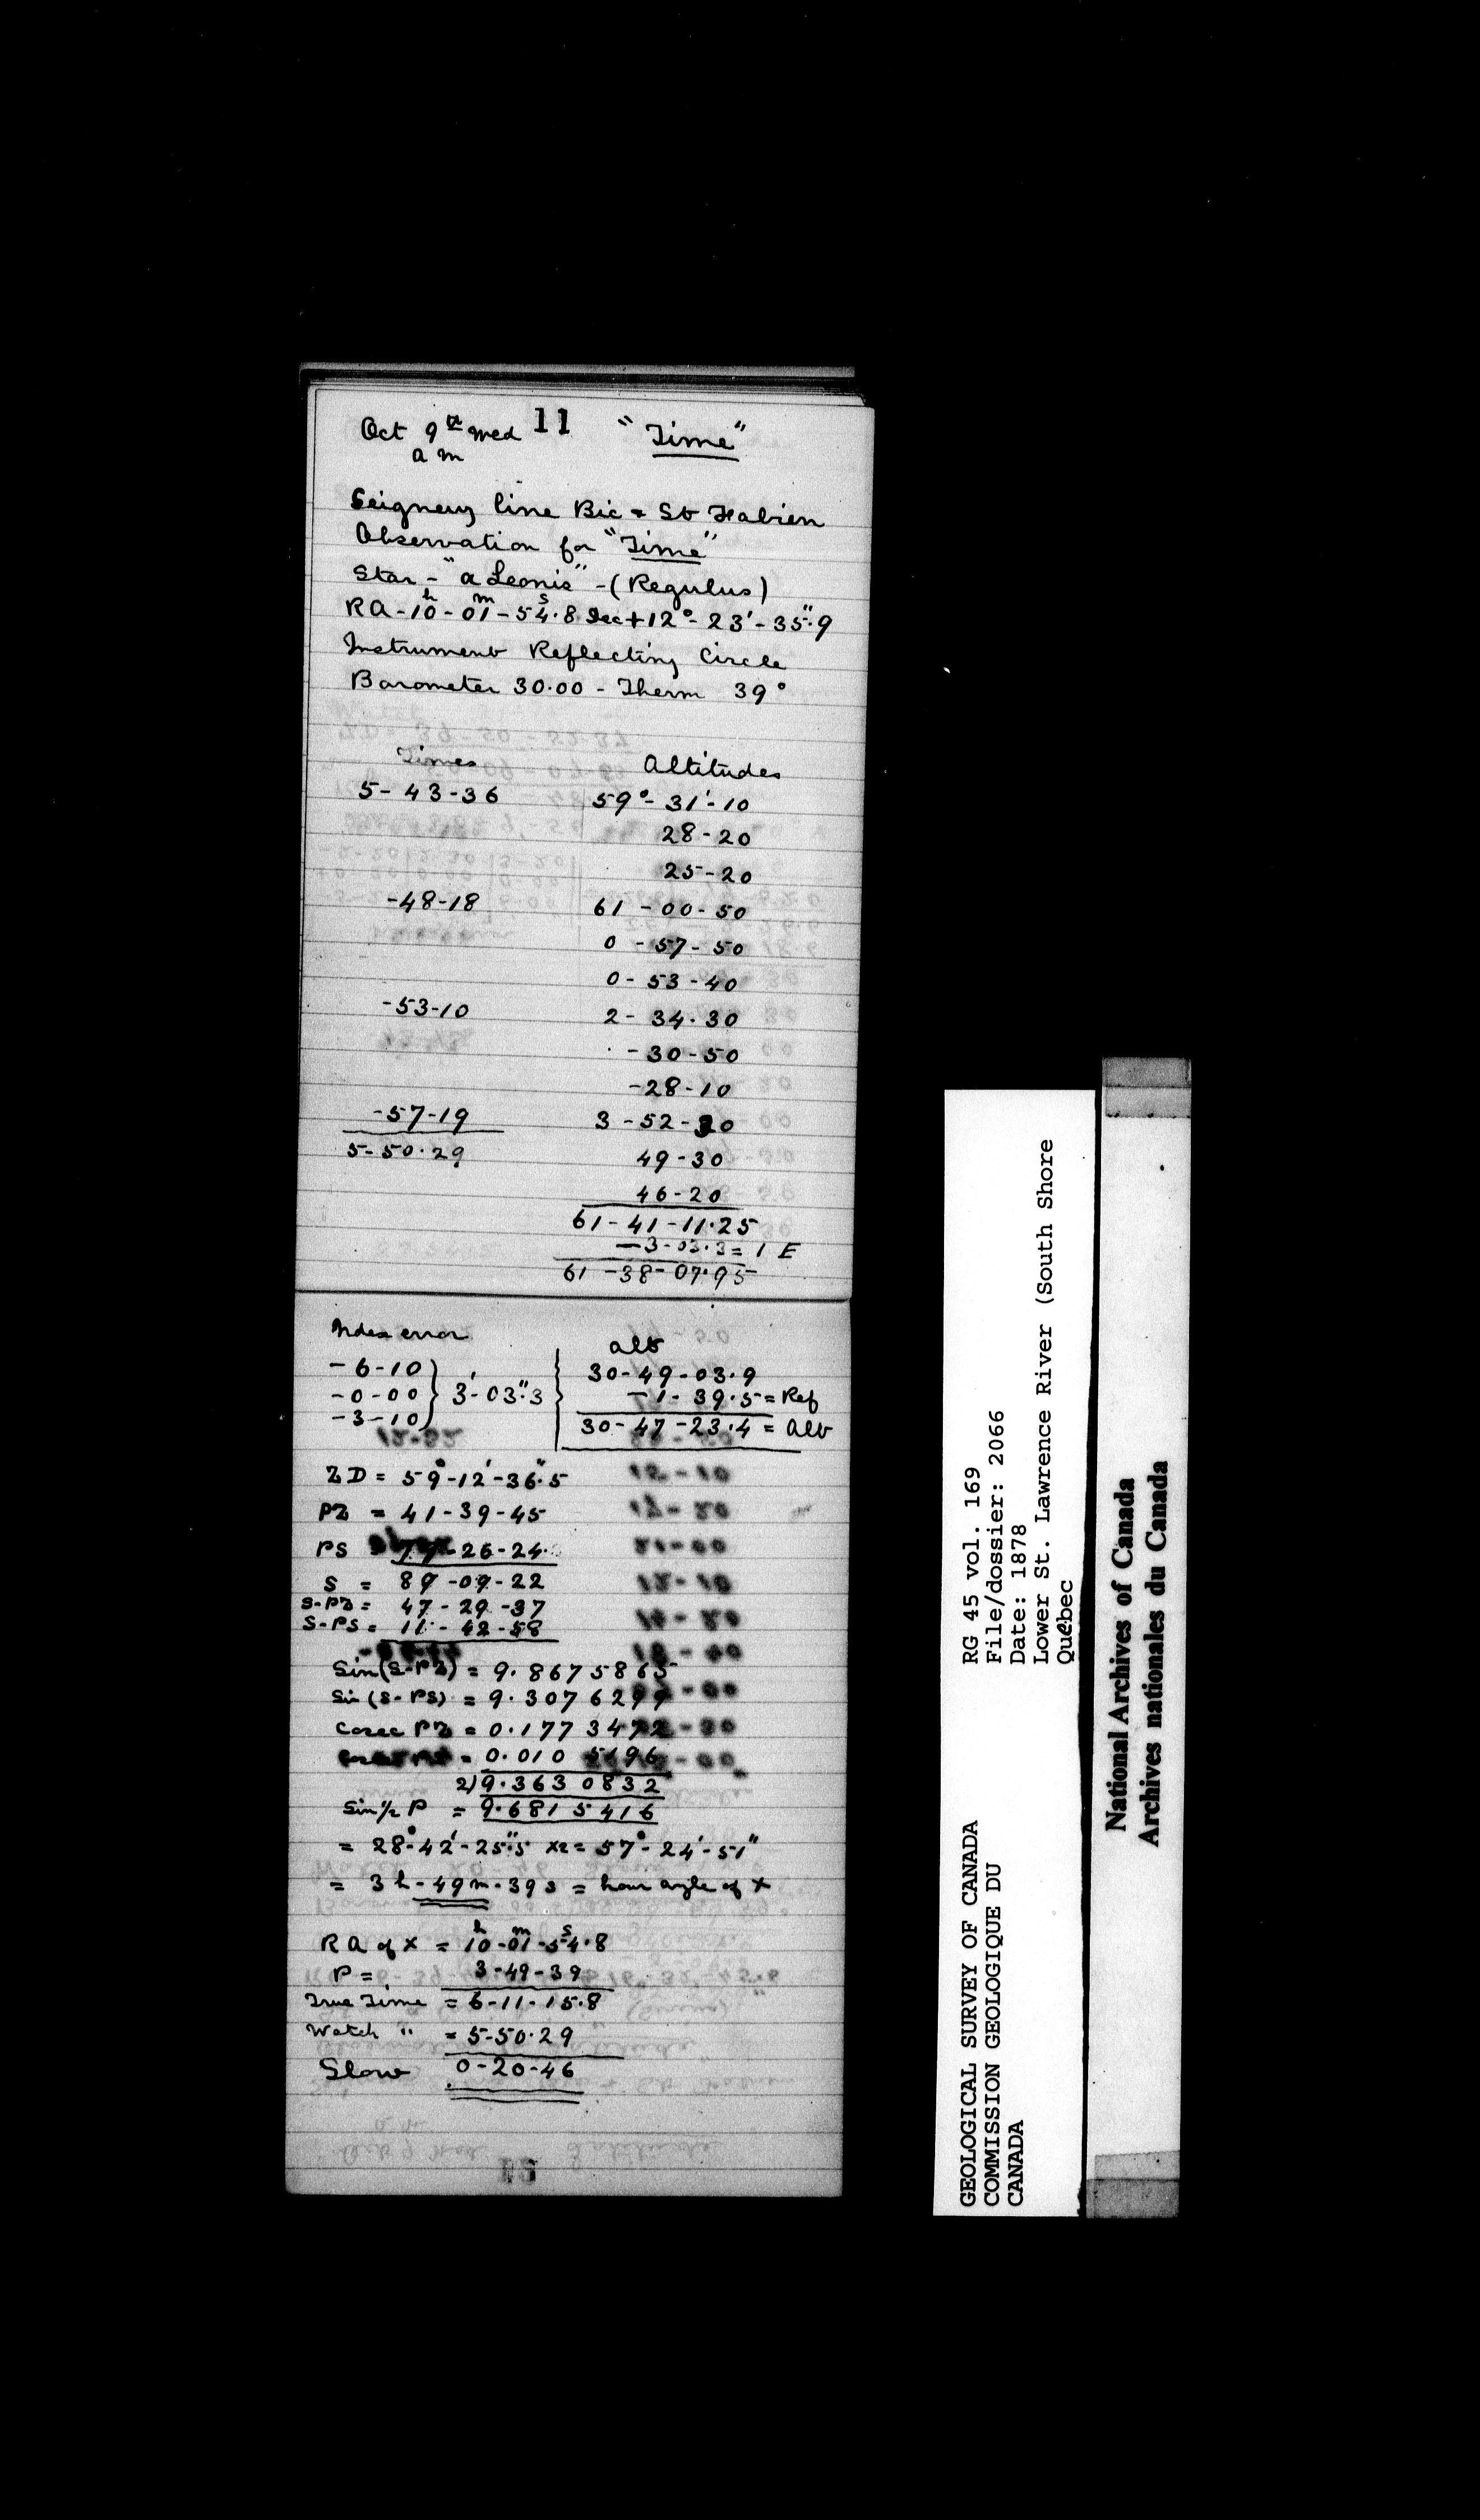 Oct 9th Wed 11 "Time"
a m
Seigneury line Bic & St Fabien
Observation for "Time"
Star - "α Leonis" - (Regulus)
RA - 10h - 01m - 54s.8 Dec + 12° - 23' - 35".9
Instrument Reflecting Circle
Barometer 30.00 - Therm 39°
Times Altitudes
5 - 43 - 36 59° - 31' - 10
28 - 20
25 - 20
- 48 - 18 61 - 00 - 50
0 - 57 - 50
0 - 53 - 40
- 53 - 10 2 - 34 . 30
- 30 - 50
- 28 - 10
- 57 - 19 3 - 52 - 20
5 - 50 . 29 49 - 30
46 - 20
61 - 41 - 11.25
- 3 - 03.3 = I E
61 - 38 - 07.95
Index error alt
- 6 - 10 30 - 49 - 03.9
- 0 - 00 } 3' - 03".3 - 1 - 39.5 = Ref
- 3 - 10 30 - 47 - 23.4 = Alt
ZD = 59° - 12' - 36".5
PZ = 41 - 39 - 45
PS 77 - 26 - 24
S = 89 - 09 - 22
S-PZ = 47 - 29 - 37
S-PS = 11 - 42 - 58
Sin (S-PZ) = 9.8675865
Sin (S-PS) = 9.3076299
Cosec PZ = 0.1773472
= 0.0105196
2) 9.3630832
Sin ½ P = 9.6815416
= 28° - 42' - 25".5 x2 = 57° - 24' - 51"
= 3 h - 49 m . 39 s = hour angle of X
RA of X = 10h - 01m - 54s.8
P = 3 - 49 - 39
True Time = 6 - 11 - 15.8
Watch " = 5 - 50 . 29
Slow 0 - 20 - 46
GEOLOGICAL SURVEY OF CANADA
COMMISSION GEOLOGIQUE DU
CANADA
RG 45 vol. 169
File/dossier: 2066
Date: 1878
Lower St. Lawrence River (South Shore
Québec
National Archives of Canada
Archives nationales du Canada